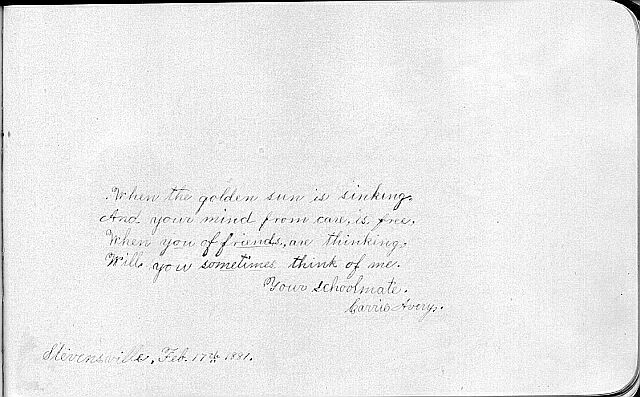 When the golden sun is sinking.
And your mind from care, is free,
When you of friends, are thinking,
Will you sometimes think of me.
Your schoolmate.
Carrie Avery.
Stevensville, Feb. 17th 1881.